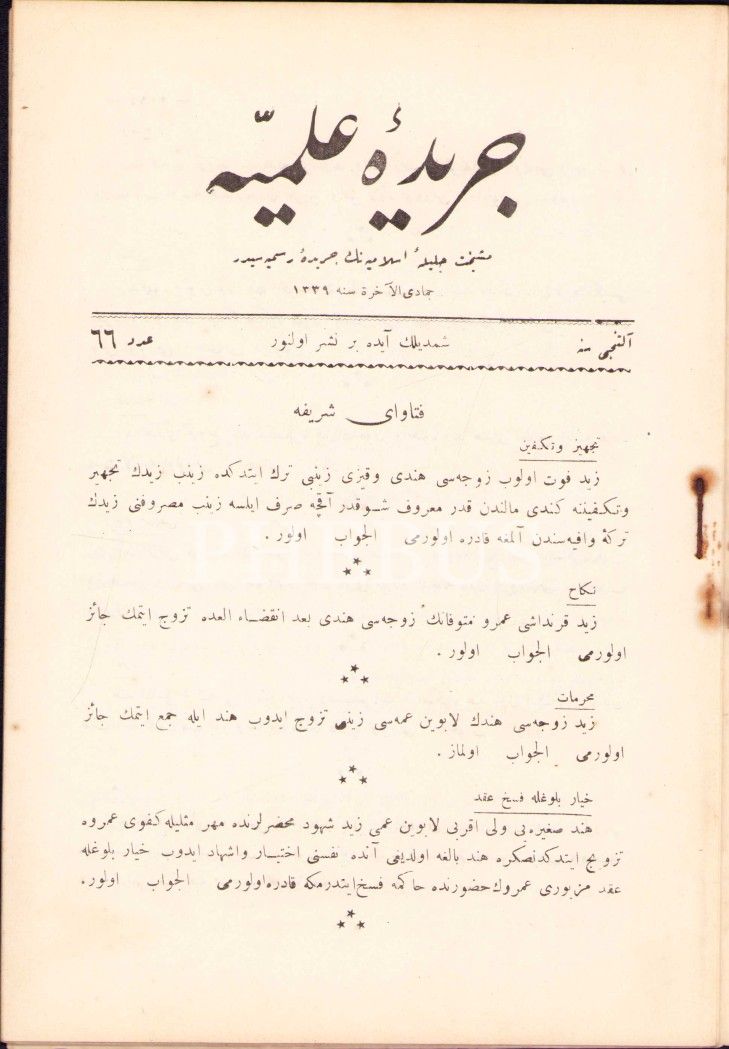 جريدۀ علميّه
مشيخت جليلۀ اسلاميه نك جريدۀ رسميه سيدر
جمادى الآخرة سنه ١٣٣٩
آلتنجى سنه
شمديلك آيده بر نشر اولنور
عدد ٦٦
فتاواى شريفه
تجهيز وتكفين
زيد فوت اولوب زوجه‌سى هندى وقيزى زينبى ترك ايتدكده زينب زيدك تجهيز
وتكفيننه كندى مالندن قدر معروف شو قدر آقچه صرف ايلسه زينب مصروفنى زيدك
تركۀ وافيه‌سندن آلمغه قادره اولورمى الجواب اولور .
PHEBUS
نكاح
زيد قرنداشى عمرو متوفانك زوجه‌سى هندى بعد انقضاء العده تزوج ايتمك جائز
اولورمى الجواب اولور .
محرمات
زيد زوجه‌سى هندك لابوين عمه‌سى زينبى تزوج ايدوب هند ايله جمع ايتمك جائز
اولورمى الجواب اولماز .
خيار بلوغله فسخ عقد
هند صغيره‌يى ولى اقربى لابوين عمى زيد شهود محضرلرنده مهر مثليله كفوى عمروه
تزويج ايتدكدنصكره هند بالغه اولديغى آنده نفسنى اختيار واشهاد ايدوب خيار بلوغله
عقد مزبورى عمروك حضورنده حاكمه فسخ ايتدرمكه قادره اولورمى الجواب اولور.